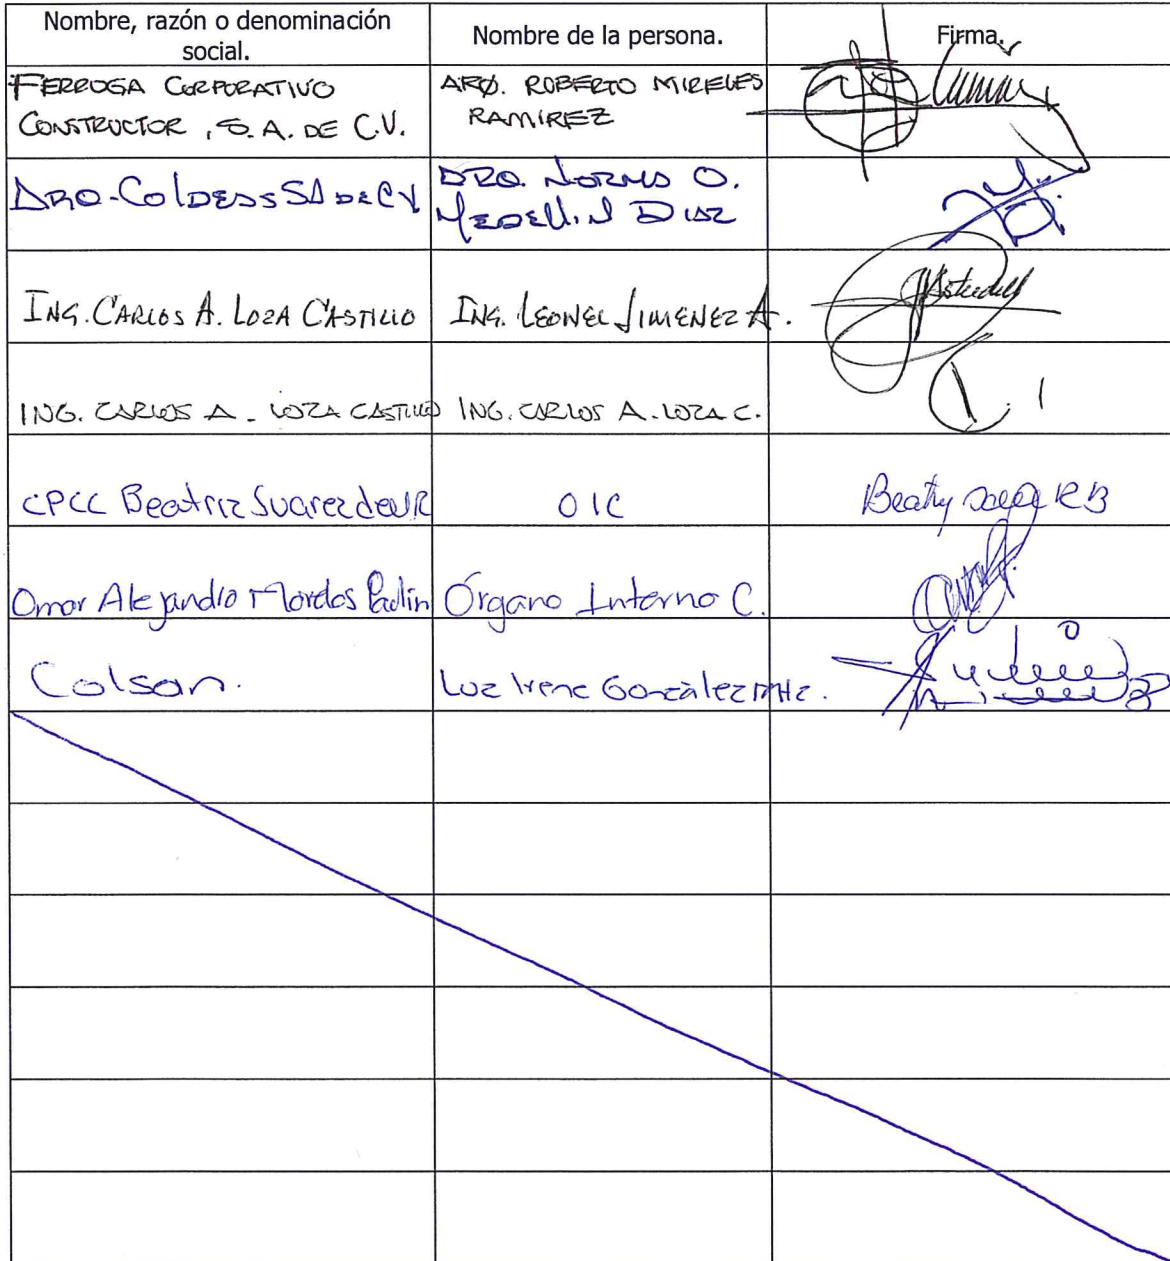 Nombre, razón o denominación
social.
Nombre de la persona.
Firma.
FERROGA CORPORATIVO
CONSTRUCTOR, S.A. DE C.V.
ARQ. ROBERTO MIRELES
RAMIREZ
ARQ-COLDESS SA DE CV
ARQ. NORMA O.
MEDELLIN DIAZ
ING. CARLOS A. LOZA CASTILLO
ING. LEONEL JIMENEZ A.
ING. CARLOS A. LOZA CASTILLO
ING. CARLOS A. LOZA C.
CPCC Beatriz Suarez del R
OIC
Omar Alejandro Morelos Padin
Órgano Interno C.
Colsan.
Luz Irene González